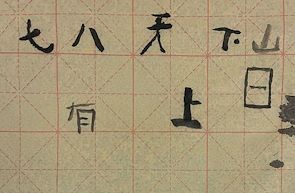 七 八 天 下 山
日
有 上